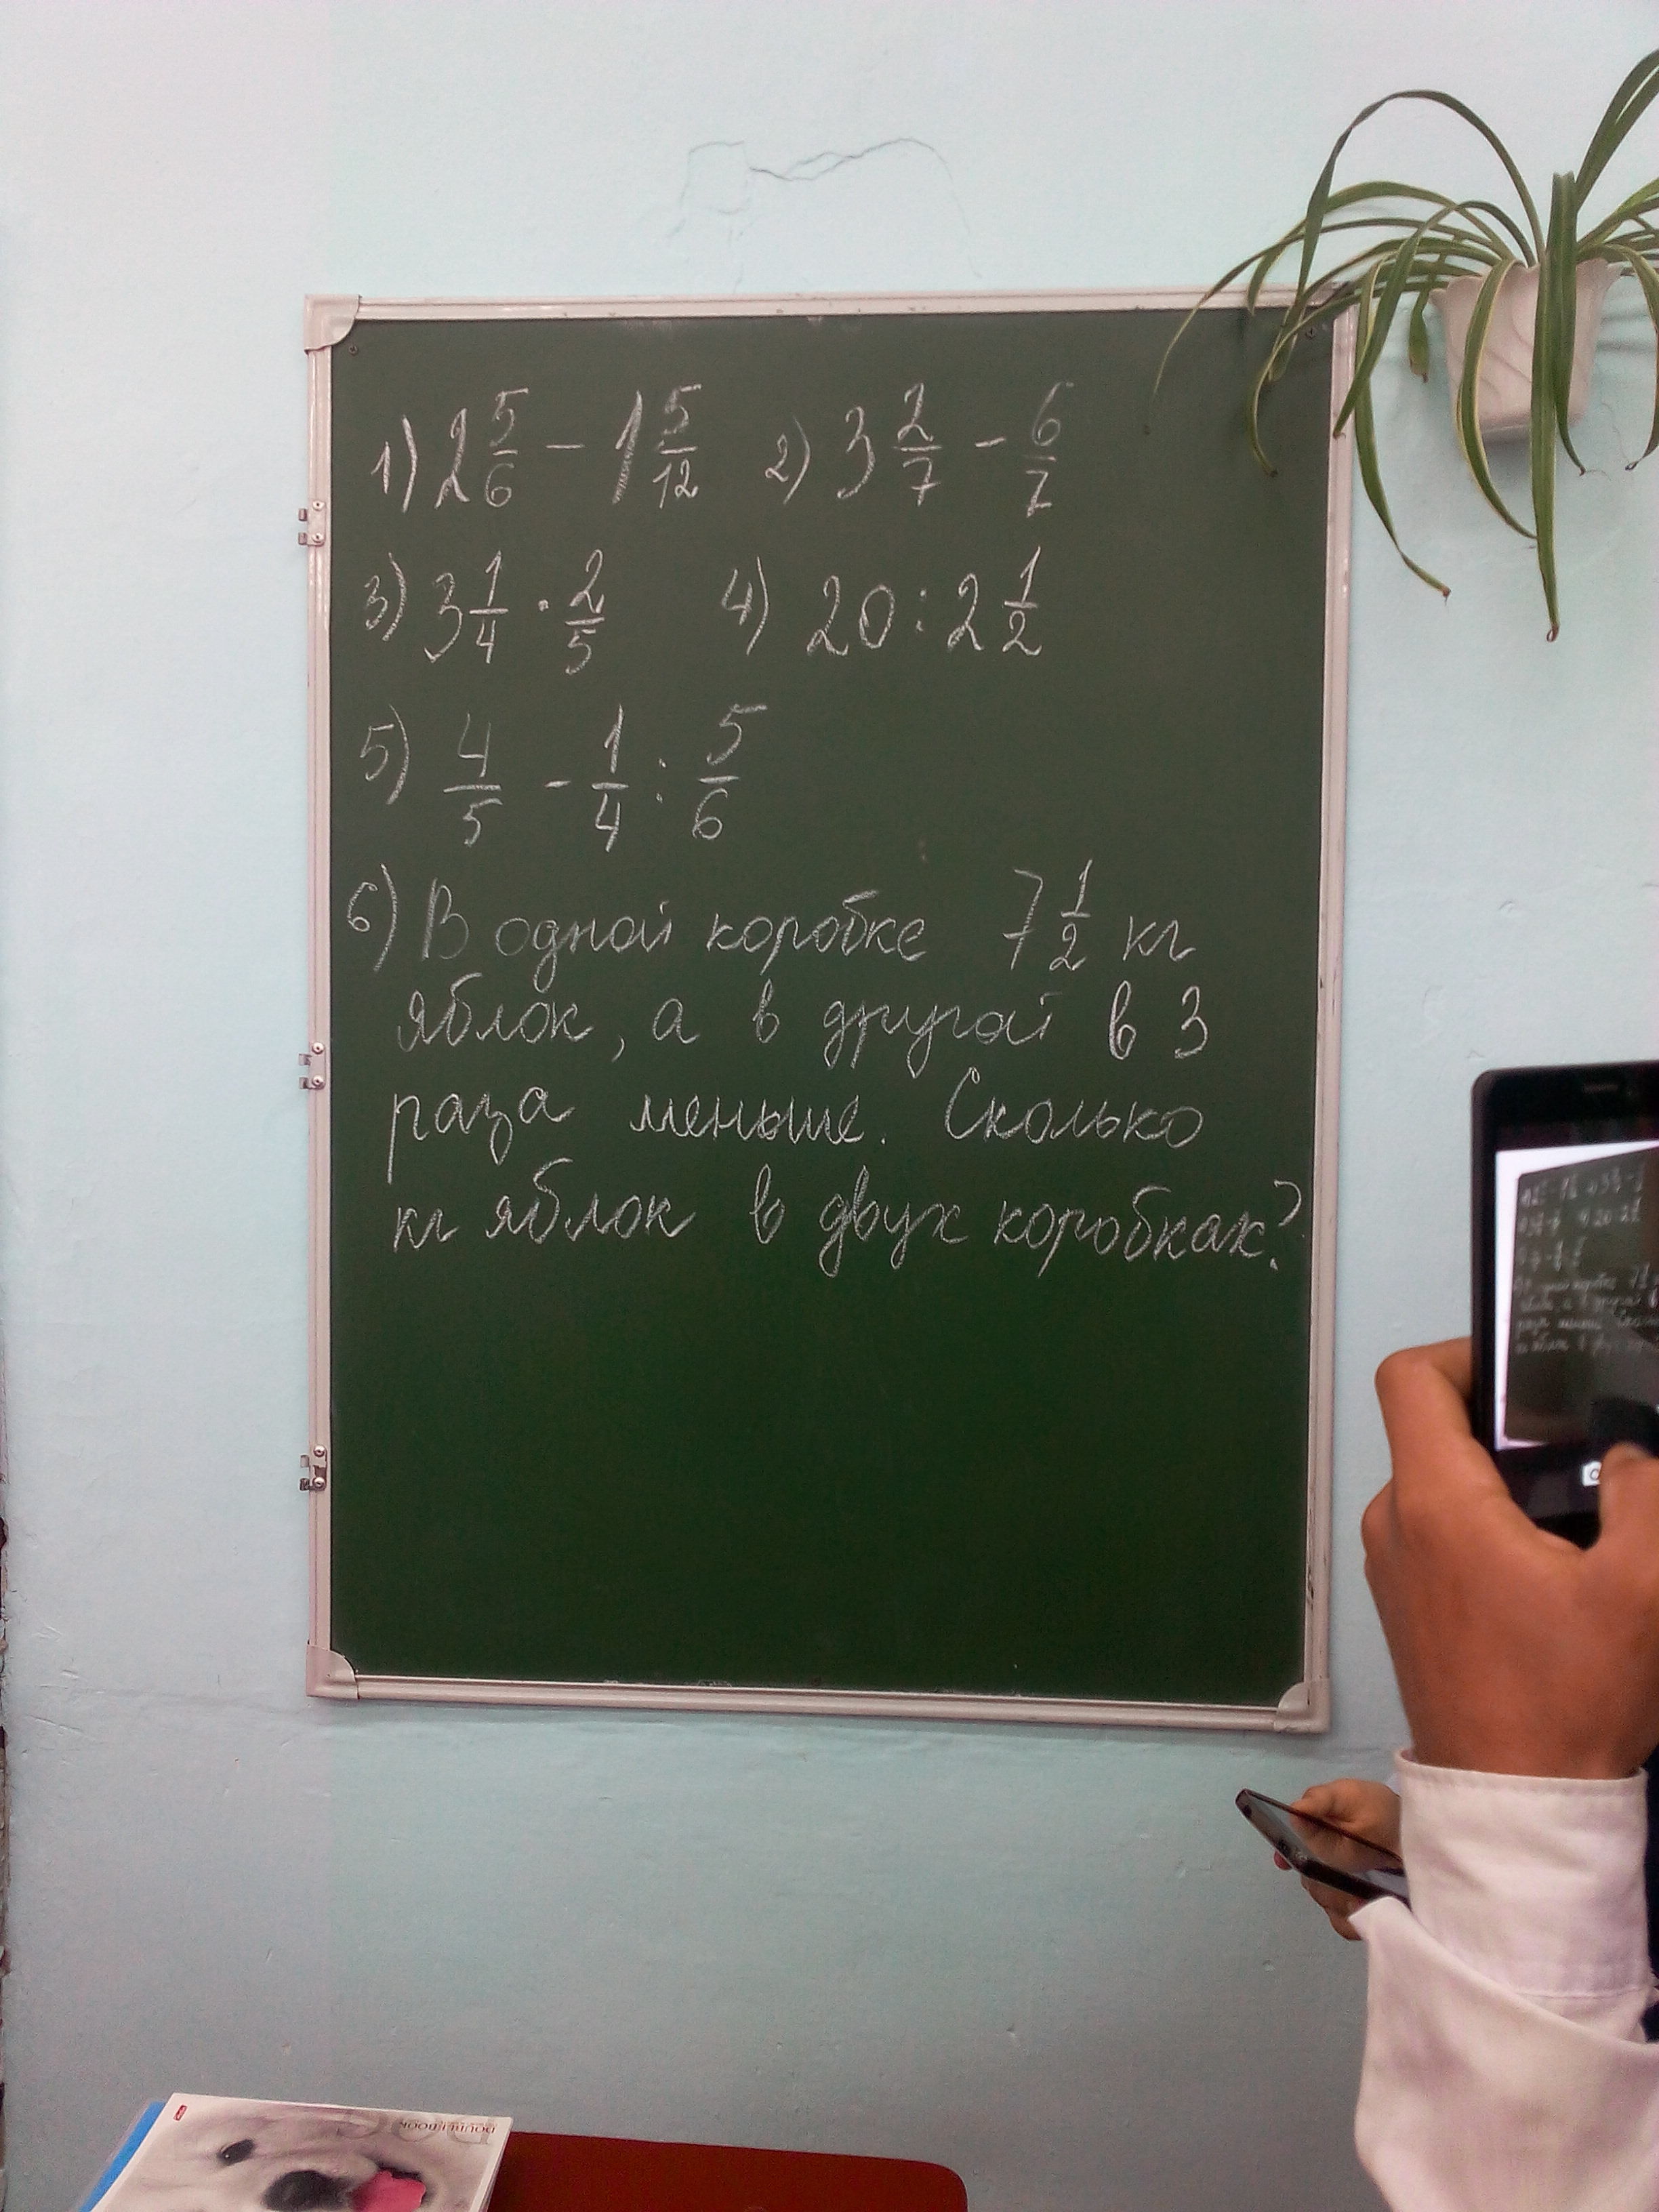 1) 2 5/6 - 1 5/12 2) 3 2/7 - 6/7
3) 3 1/4 · 2/5 4) 20 : 2 1/2
5) 4/5 - 1/4 : 5/6
6) В одной коробке 7 1/2 кг
яблок, а в другой в 3
раза меньше. Сколько
кг яблок в двух коробках?
DOUBLE BOOK